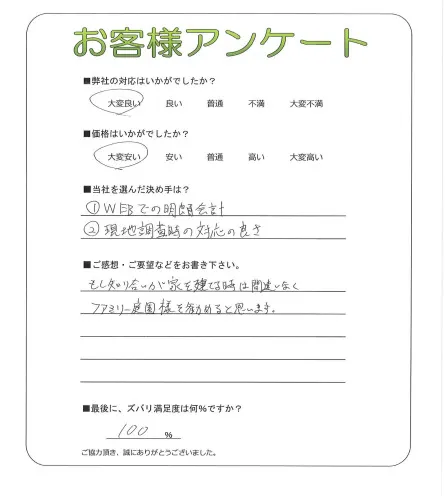 お客様アンケート
■弊社の対応はいかがでしたか？
大変良い 良い 普通 不満 大変不満
■価格はいかがでしたか？
大変安い 安い 普通 高い 大変高い
■当社を選んだ決め手は？
①WEBでの明朗会計
②現地調査時の対応の良さ
■ご感想・ご要望などをお書き下さい。
もし知り合いが家を建てる時は間違いなく
ファミリー庭園様を勧めると思います。
■最後に、ズバリ満足度は何%ですか？
100 %
ご協力頂き、誠にありがとうございました。